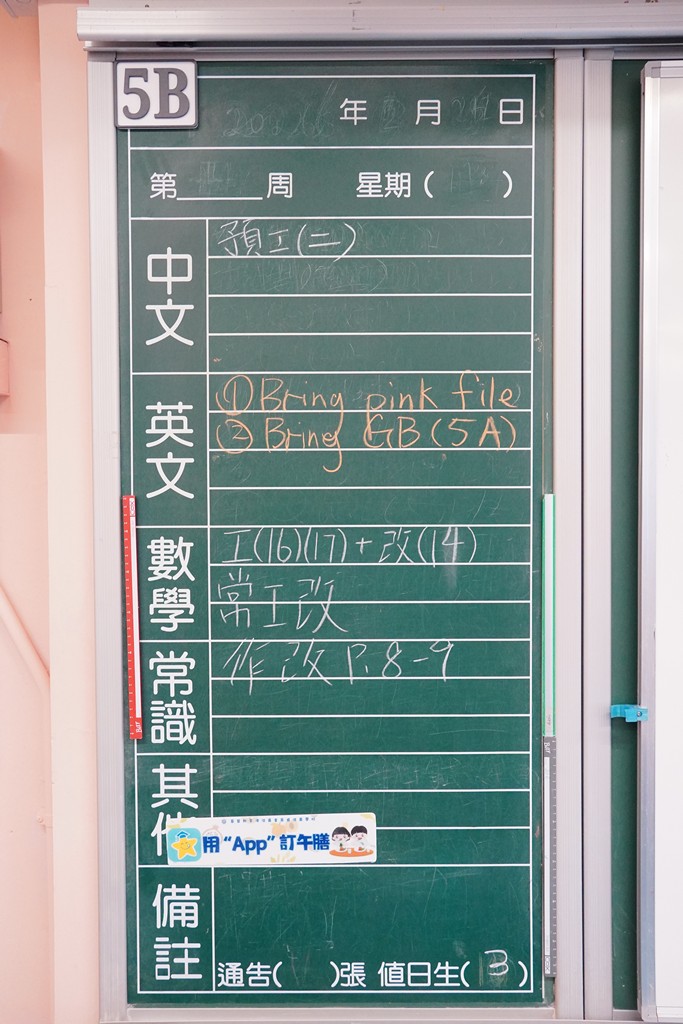 5B
年 月 日
第______周 星期( )
中文
預工(二)
英文
①Bring pink file
②Bring GB(5A)
數學
工(16)(17)+改(14)
常工改
常識
作改 P.8-9
其他
用“App”訂午膳
備註
通告( )張 值日生(3)